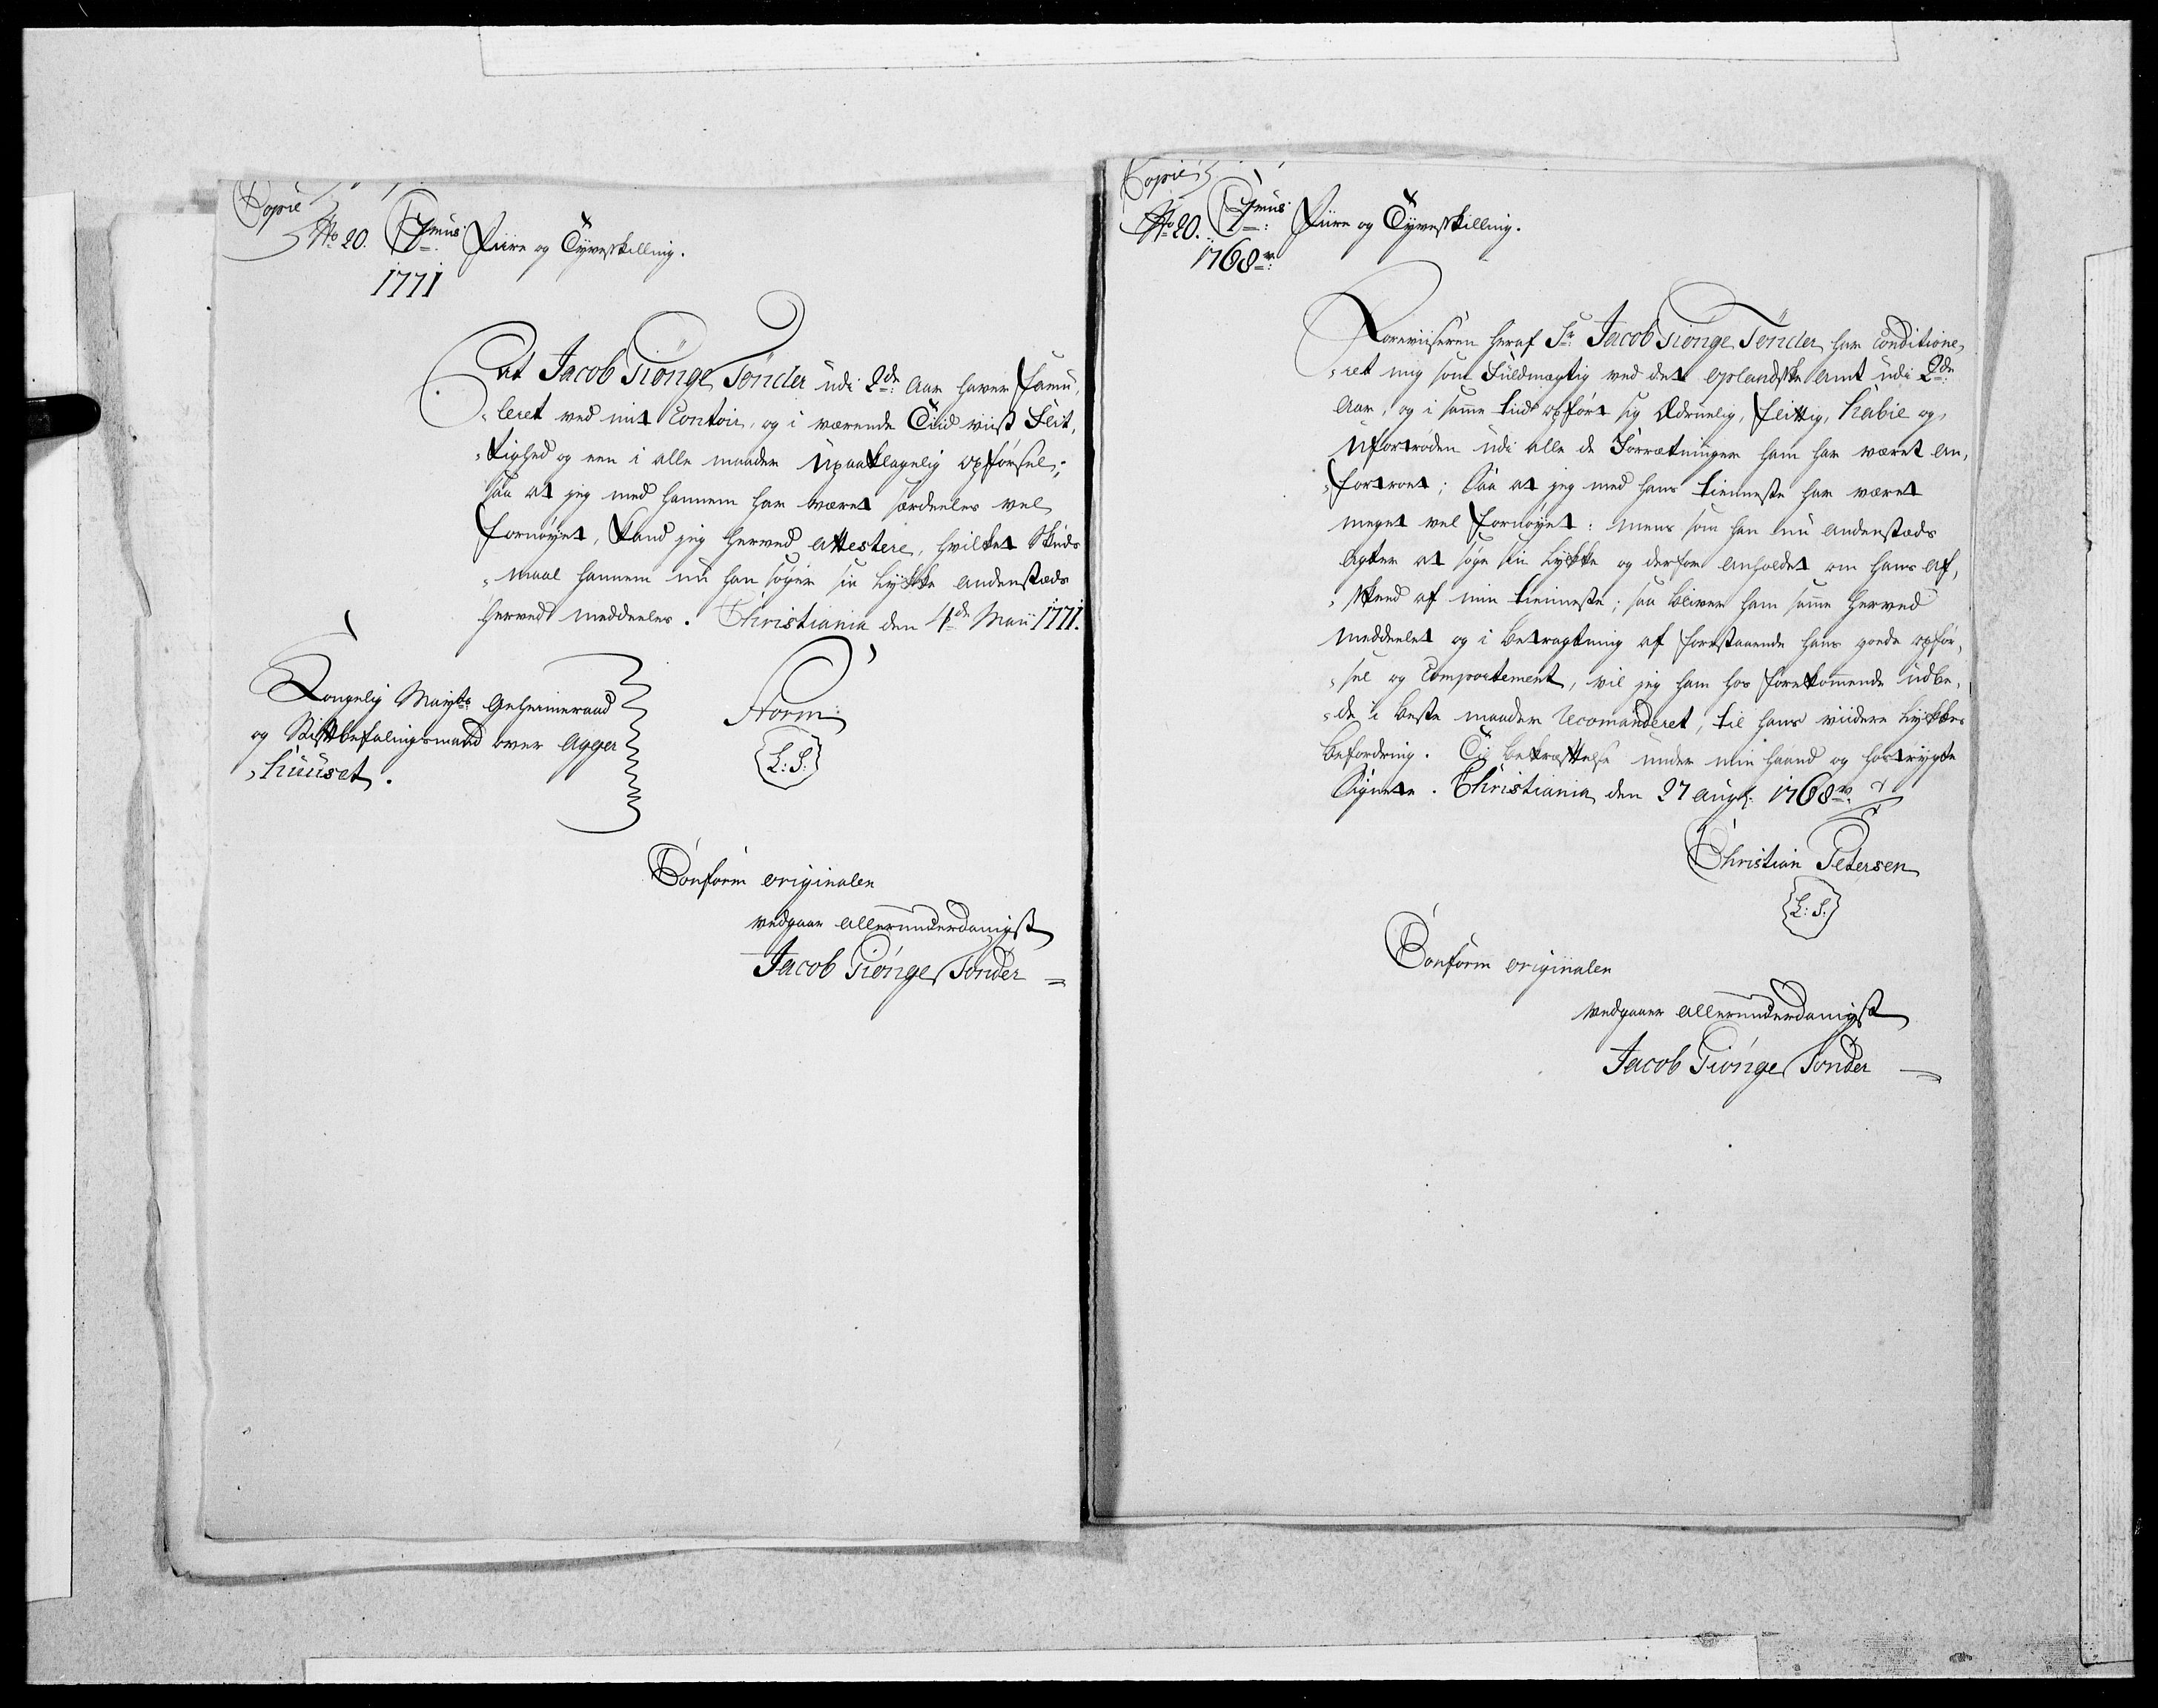 Copie
No 20. C7mus Fiire og Tyveskilling.
1771
At Jacob Giönge Tönder udi 2de Aar haver famu-
leret ved mit Contoir, og i værende Tiid viist Flit-
tighed og een i alle maader Upaaklagelig opførsel;
saa at jeg med hannem har været særdeeles vel
fornøyet, kand jeg herved attestere, hvilket Skuds-
maal hannem nu han søger sin Lykke andenstæds
herved meddeeles. Christiania den 4de Maii 1771.
Kongelig Mayts Geheimeraad
og Stiftbefalingsmand over Agger-
huuset.
Storm
L: S:
Conform originalen
vedgaar allerunderdanigst
Jacob Giönge Tönder
Copie
No 20. C7mus Fiire og Tyveskilling.
1768
Foreviiseren heraf Sr Jacob Giönge Tönder har Conditione-
ret mig som Fuldmægtig ved det Oplandske Amt udi 2de
Aar, og i samme tiid opført sig Ædruelig, flittig, habil og
Ufortrøden udi alle de Forrætninger ham har været an-
fortroet; Saa at jeg med hans tienneste har været
meget vel fornøyet: mens som han nu andenstæds
agter at søge sin Lykke og derfor anholdet om hans Af-
skeed af min tienneste; saa bliver ham samme herved
meddeelet og i betragtning af forestaaende hans goede opfør-
sel og Comportement, vil jeg ham hos forekommende udbe-
de i beste maader Recomanderet, til hans viidere Lykkes
befordring. Til bekræftelse under min haand og hostrygte
Signete. Christiania den 27 Aug: 1768.
Christian Petersen
L: S:
Conform originalen
vedgaaer allerunderdanigst
Jacob Giönge Tönder